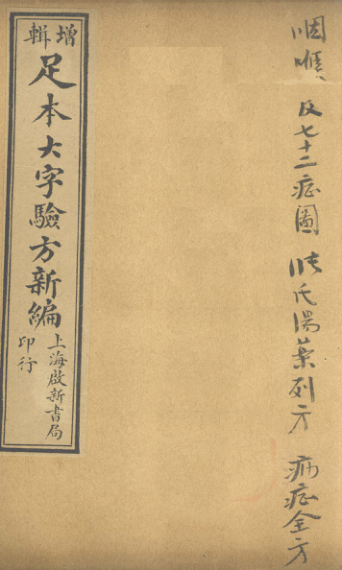 增輯
足本大字驗方新編
上海啟新書局
印行
咽喉 及七十二症圖 陈氏湯藥列方 病症全方